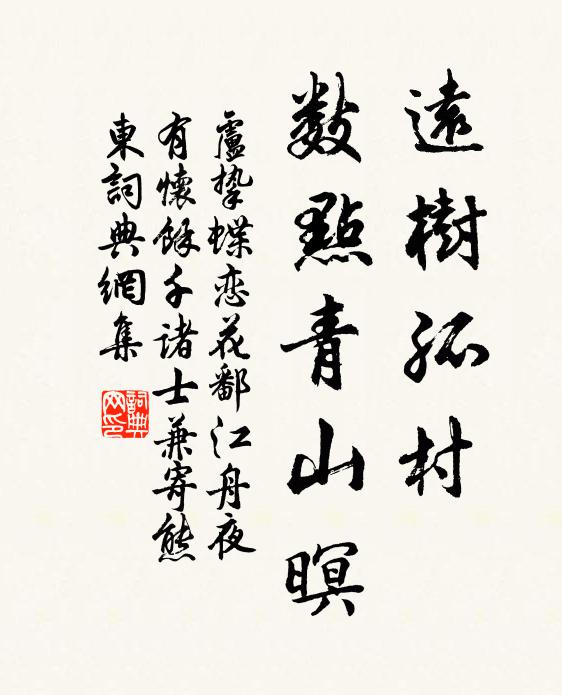 遠樹孤村
數點青山暝
盧摯蝶恋花鄱江舟夜
有懷餘干諸士兼寄熊
東詞典網集
詞典网印